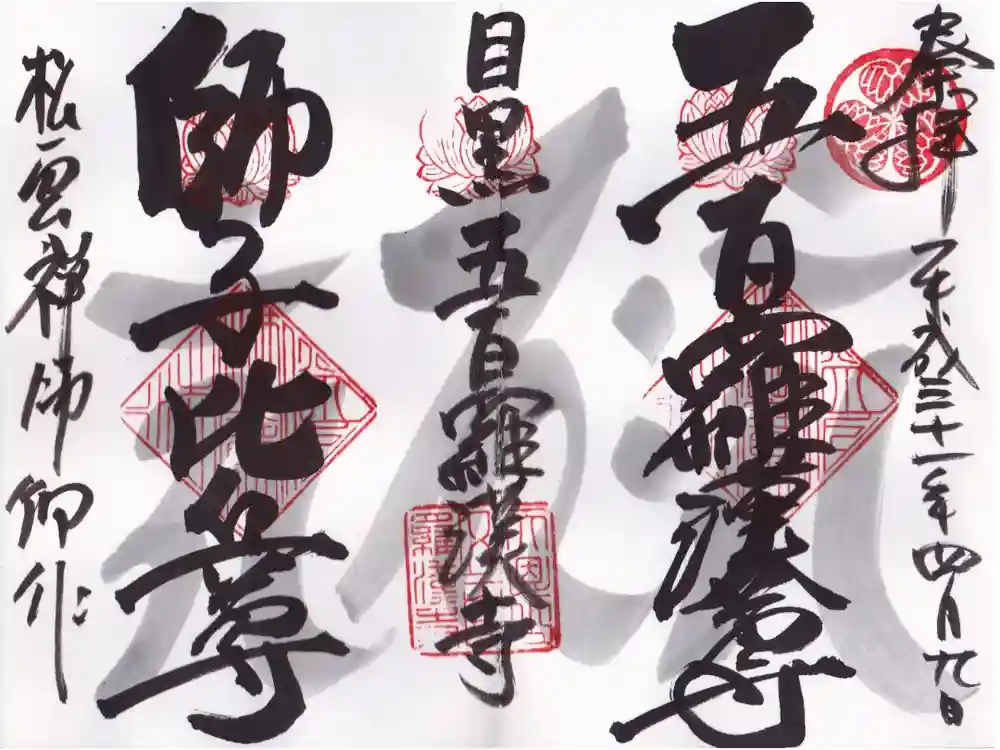 奉拝 平成三十一年四月九日
五百羅漢尊
目黒五百羅漢寺
師子比丘尊
松雲禅師御作